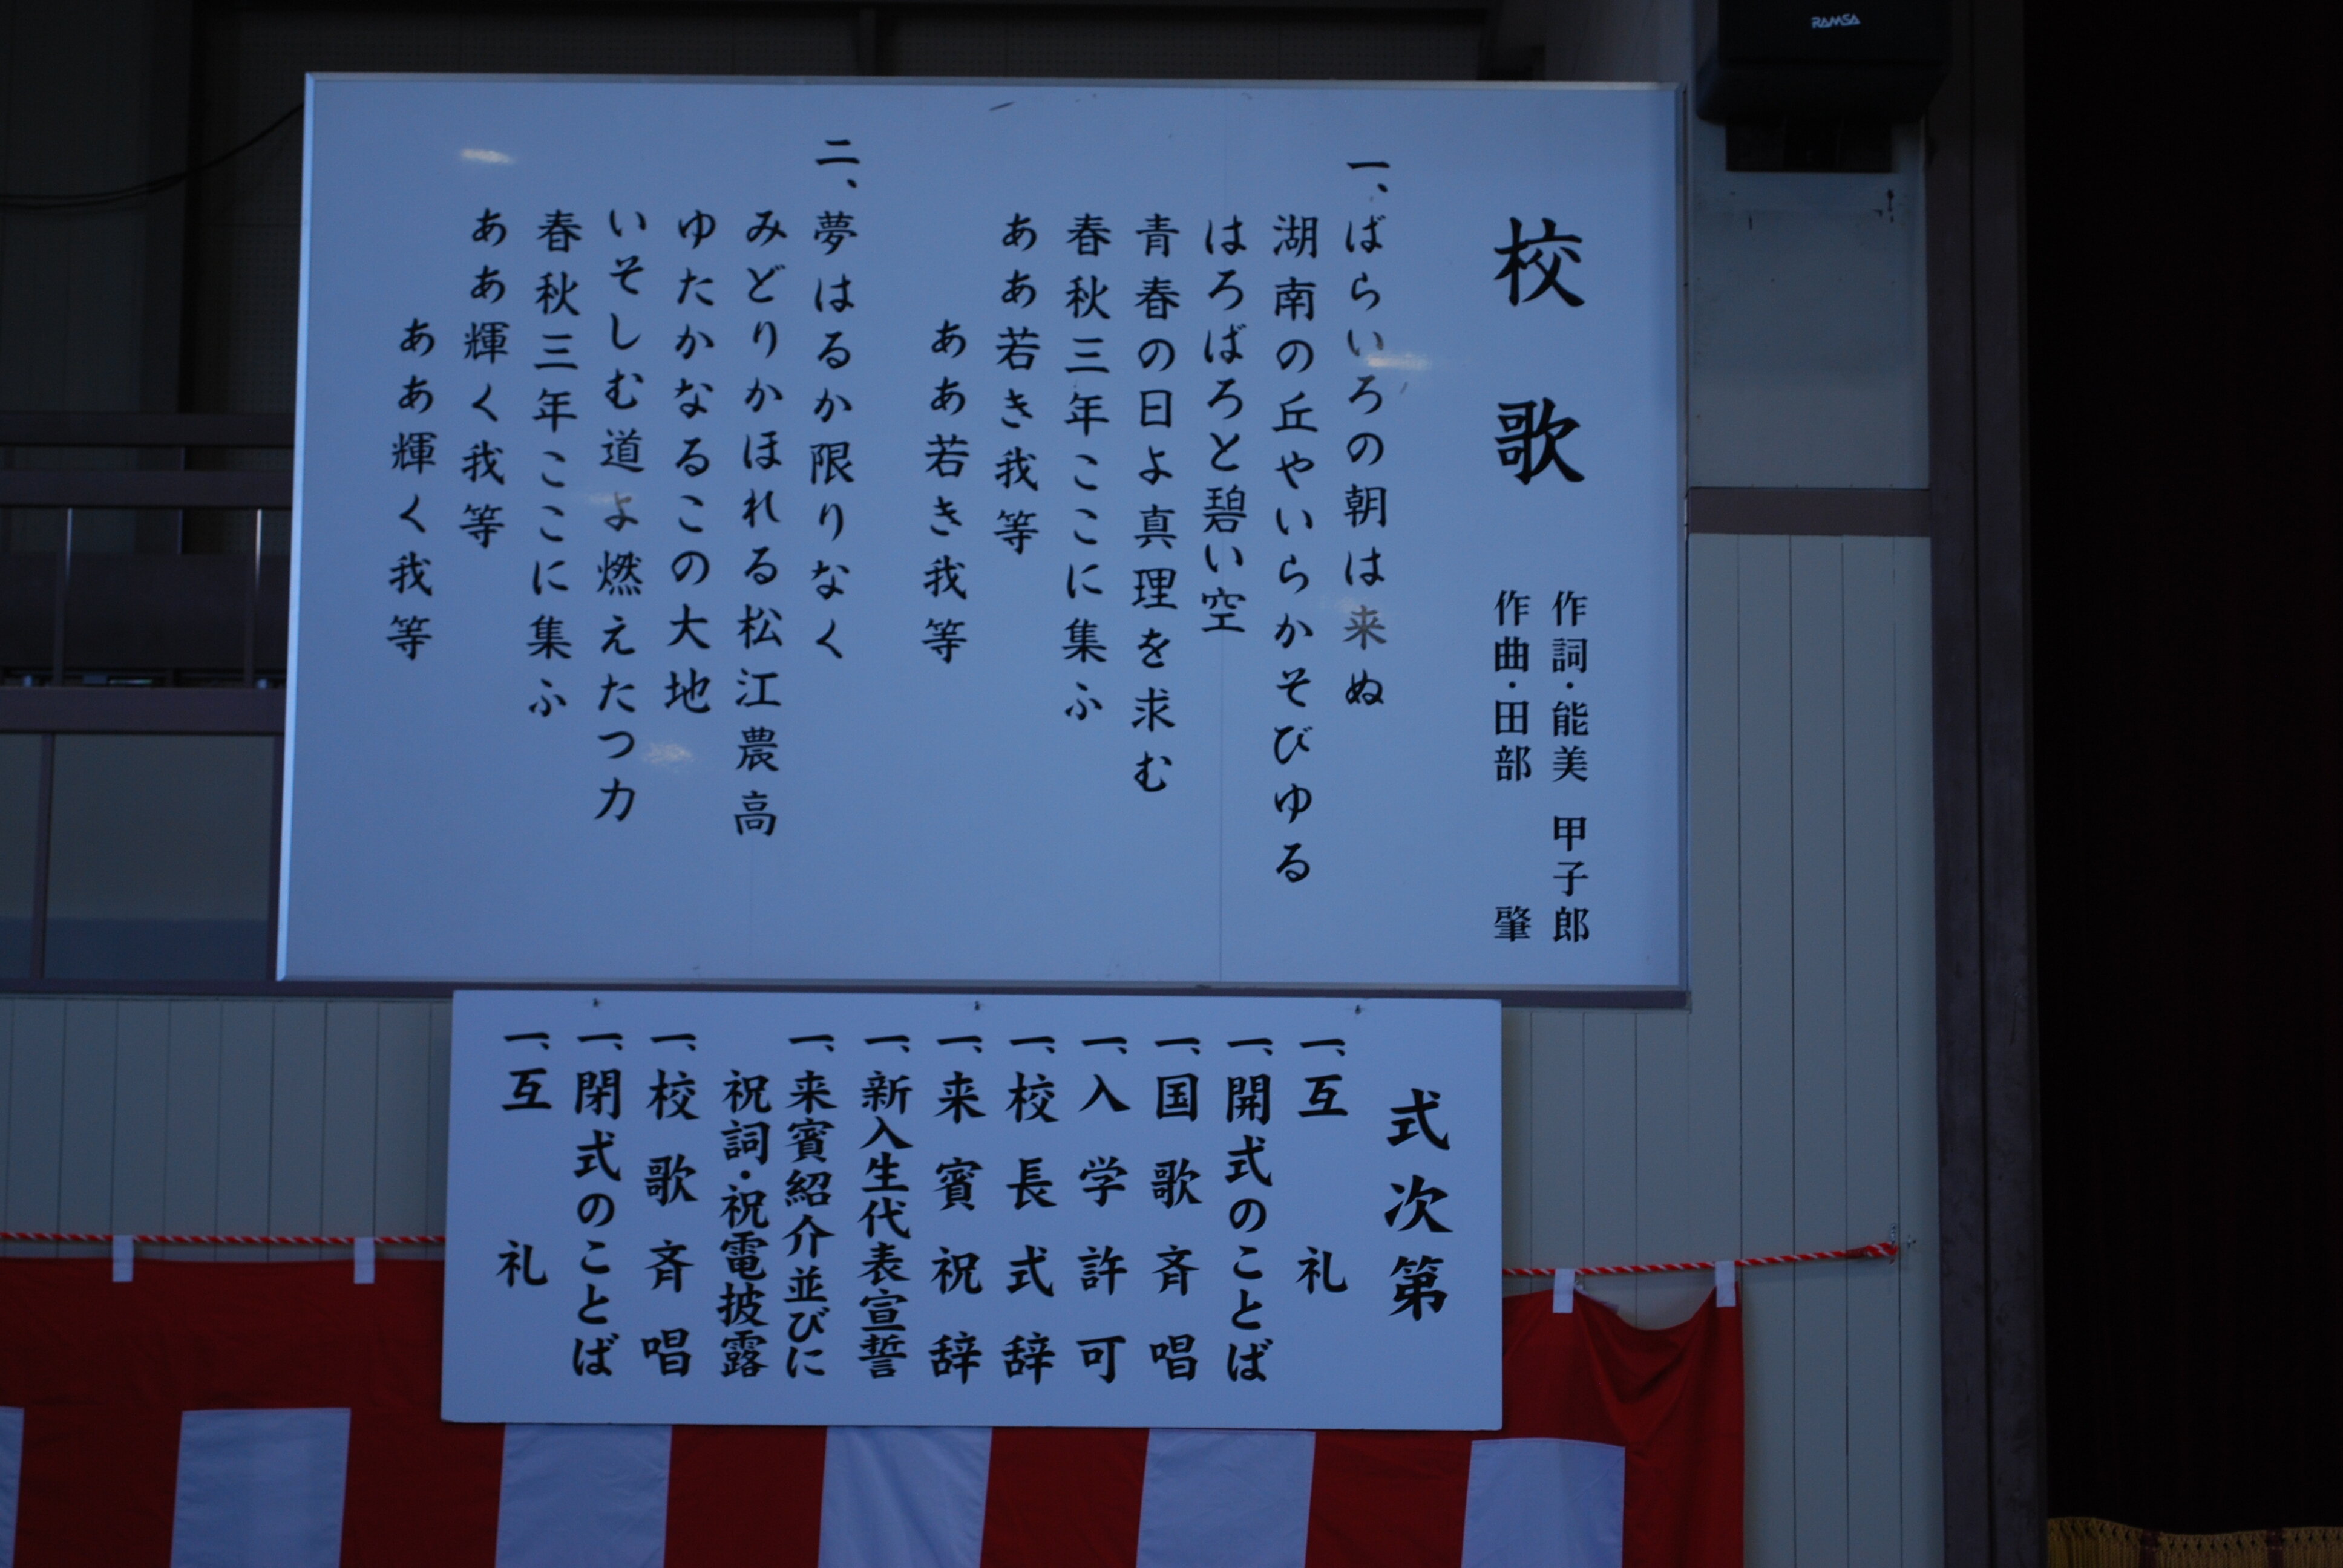 校歌
作詞・能美 甲子郎
作曲・田部 肇
一、ばらいろの朝は来ぬ
湖南の丘やいらかそびゆる
はろばろと碧い空
青春の日よ真理を求む
春秋三年ここに集ふ
ああ若き我等
ああ若き我等
二、夢はるか限りなく
みどりかほれる松江農高
ゆたかなるこの大地
いそしむ道よ燃えたつ力
春秋三年ここに集ふ
ああ輝く我等
ああ輝く我等
式次第
一、互礼
一、開式のことば
一、国歌斉唱
一、入学許可
一、校長式辞
一、来賓祝辞
一、新入生代表宣誓
一、来賓紹介並びに
祝詞・祝電披露
一、校歌斉唱
一、閉式のことば
一、互礼
RAMSA